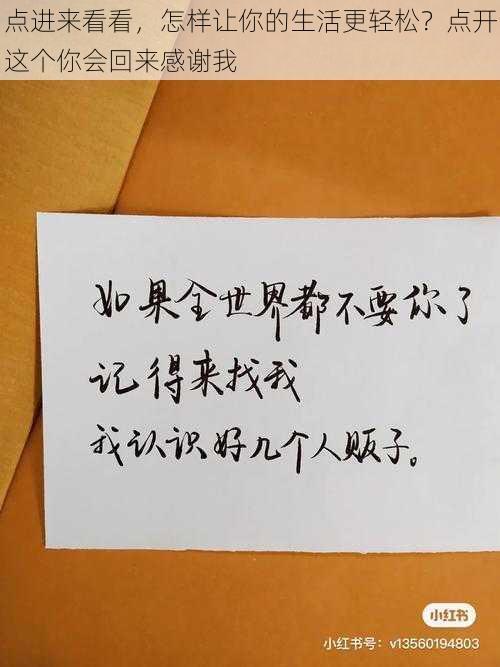 点进来看看，怎样让你的生活更轻松？点开
这个你会回来感谢我
如果全世界都不要你了
记得来找我
我认识好几个人贩子。
小红书
小红书号：v13560194803